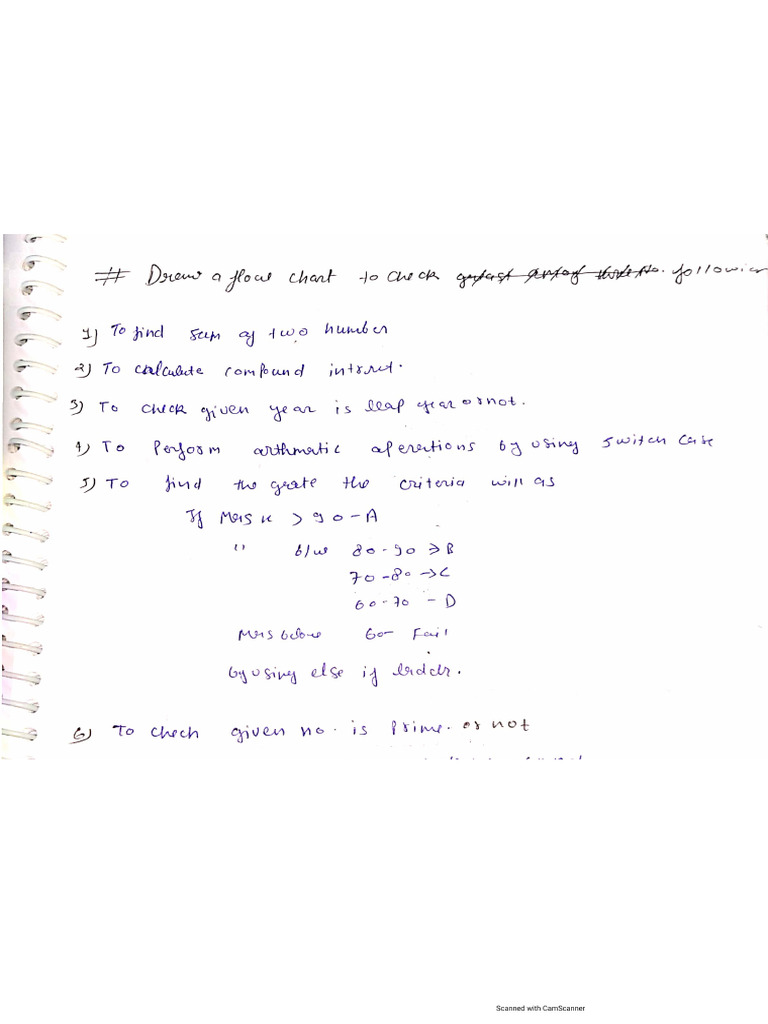 # Draw a flow chart to check greatest among three no. following
1) To find sum of two number
2) To calculate compound intrest.
3) To check given year is leap year or not.
4) To Perform arthmatic operations by using switch case
5) To find the grate the criteria will as
If Mark > 90 - A
" b/w 80-90 → B
70-80 → C
60-70 - D
Mrs below 60- Fail
by using else if laddr.
6) To check given no. is Prime. or not
Scanned with CamScanner